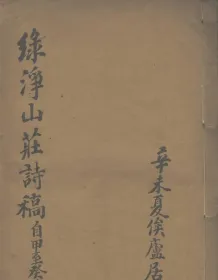 綠淨山莊詩稿 自甲至癸
辛未夏俟盧居